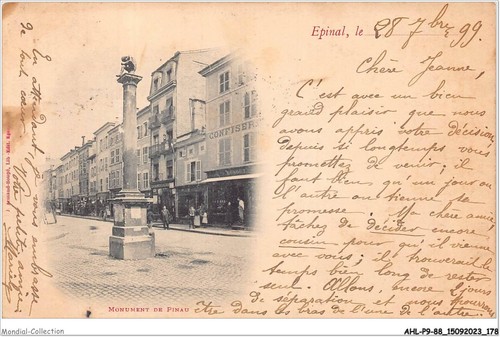 AHL-P9-88
Epinal, le 28 7bre 99
Chère Jeanne,
C'est avec un bien
grand plaisir que nous
avons appris votre décision.
Depuis si longtemps vous
promettez de venir; il
faut bien qu'un jour ou
l'autre on tienne sa
promesse. Ma chère amie,
tâchez de décider encore
cousin pour qu'il vienne
avec vous; il trouverait le
temps bien long de rester
seul. Allons, encore 2 jours
de séparation et nous pourrons
être dans les bras de l'une de l'autre.
En attendant, je vous embrasse
de tout cœur.
Votre petite amie
CONFISER
MONUMENT DE PINAU
Mondial-Collection
AHL-P9-88 15092023_178